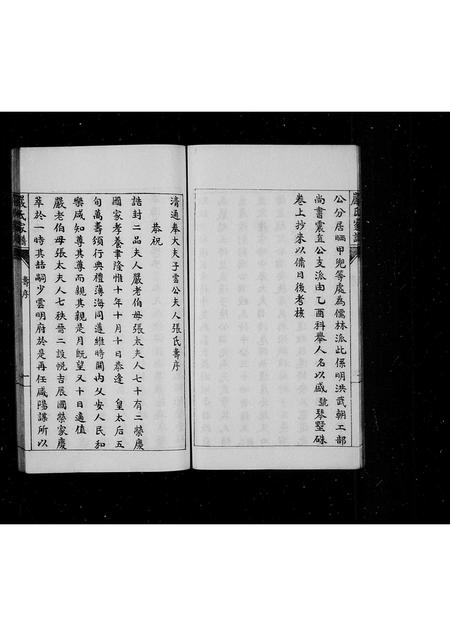 嚴氏家譜
公分居晒甲兜等處為儒林派此係明洪武朝工部
尚書震直公支派由乙酉科舉人名以盛號琴墅硃
卷上抄來以備日後考核
清通奉大夫子雲公夫人張氏壽序
恭祝
誥封二品夫人嚴老伯母張太夫人七十有二榮慶
國家孝養聿隆惟十年十月十日恭逢 皇太后五
旬萬壽頒行典禮薄海同遵維時闗內乂安人民和
樂咸知尊其尊而親其親是月既望又十日適值
嚴老伯母張太夫人七秩晉二設帨吉辰國榮家慶
萃於一時其喆嗣少雲明府於是再任咸陽謀所以
嚴氏家譜
壽序
一